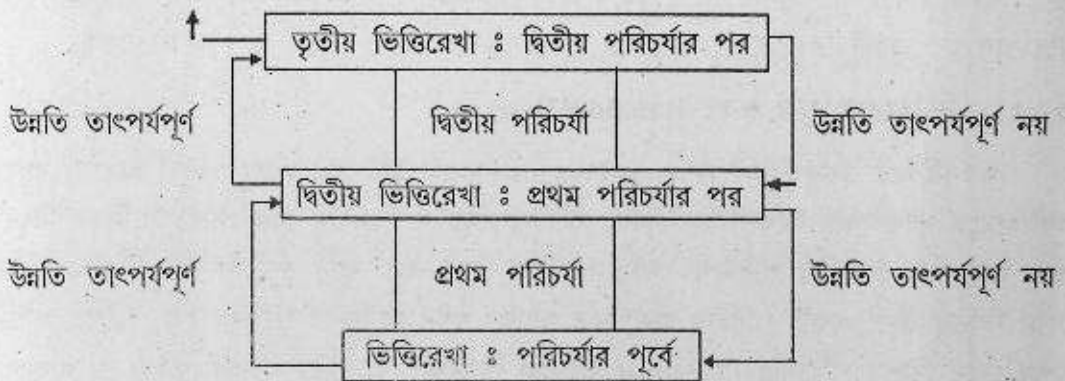 তৃতীয় ভিত্তিরেখা ঃ দ্বিতীয় পরিচর্যার পর
উন্নতি তাৎপর্যপূর্ণ দ্বিতীয় পরিচর্যা উন্নতি তাৎপর্যপূর্ণ নয়
দ্বিতীয় ভিত্তিরেখা ঃ প্রথম পরিচর্যার পর
উন্নতি তাৎপর্যপূর্ণ প্রথম পরিচর্যা উন্নতি তাৎপর্যপূর্ণ নয়
ভিত্তিরেখা ঃ পরিচর্যার পূর্বে